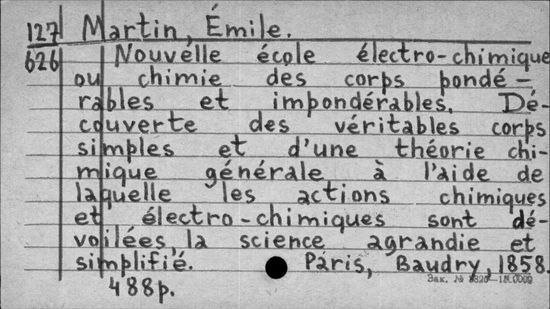 127 Martin, Émile.
626 Nouvelle école électro-chimique
ou chimie des corps pondé-
rables et impondérables. Dé-
couverte des véritables corps
simples et d'une théorie chi-
mique générale à l'aide de
laquelle les actions chimiques
et électro-chimiques sont dé-
voilées, la science agrandie et
simplifié. Páris, Baudry, 1858.
488p.
Зак. №